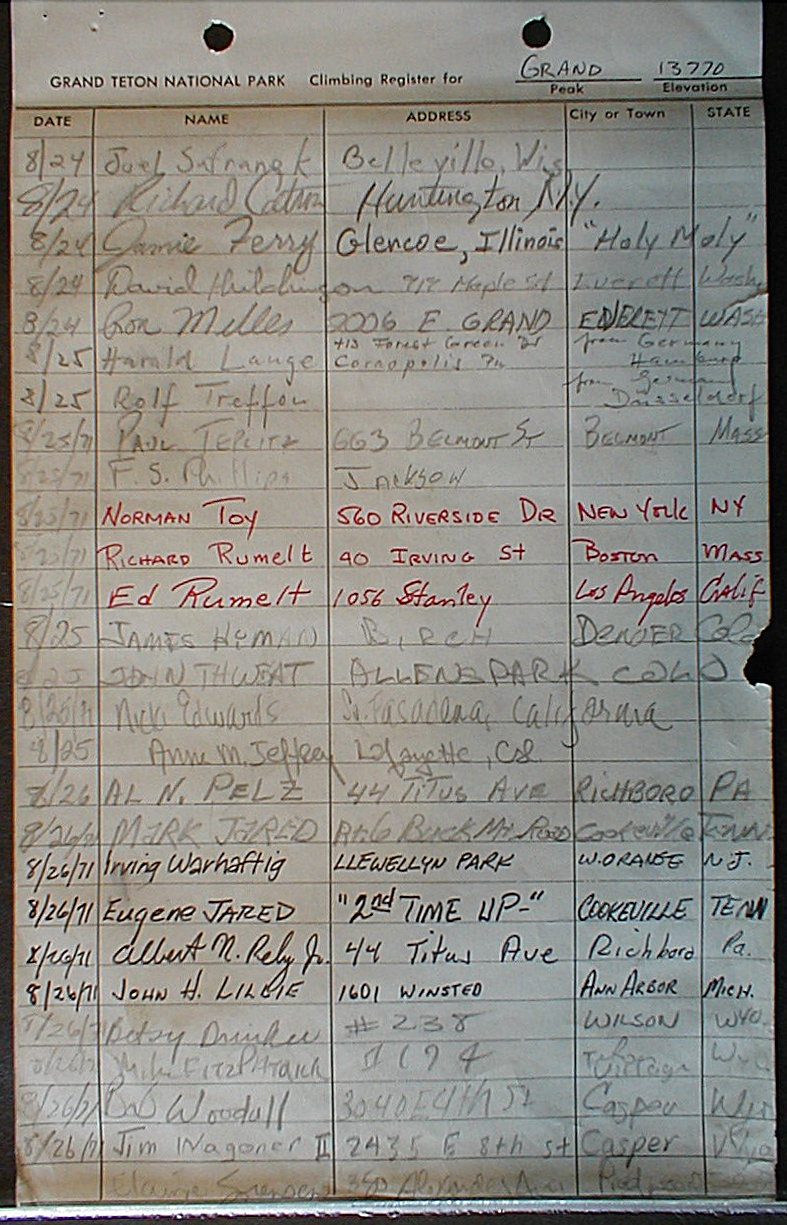 GRAND TETON NATIONAL PARK Climbing Register for GRAND 13770
Peak Elevation
DATE NAME ADDRESS City or Town STATE
8/24 Joel Safranek Belleville, Wis
8/24 Richard Huntington N.Y.
8/24 Jamie Ferry Glencoe, Illinois "Holy Moly"
8/24 David Hutchinson Maple St Everett Wash
8/24 Ron Miller 2006 E. GRAND EVERETT WASH
8/25 Harald Lange 413 Forest Green Dr from Germany
Coraopolis Pa Hamburg
8/25 Rolf Treffon from Germany
Dusseldorf
8/25/71 PAUL TEPLITZ 663 BELMONT ST BELMONT MASS
8/25/71 F.S. Phillips JACKSON
8/25/71 NORMAN TOY 560 RIVERSIDE DR NEW YORK NY
8/25/71 RICHARD RUMELT 90 IRVING St BOSTON MASS
8/25/71 Ed Rumelt 1056 Stanley Los Angeles Calif
8/25 JAMES HYMAN BIRCH DENVER Colo
8/25 JOHN THWEAT ALLENSPARK COLO
8/25/71 Nicki Edwards So. Pasadena, California
8/25 Anne M. Jeffrey Lafayette, Col.
8/26 AL N. PELZ 44 TITUS AVE RICHBORO PA
8/26/71 MARK JARED Rt 6 BUCK Mt. ROAD Cookeville TENN
8/26/71 Irving Warhaftig LLEWELLYN PARK W. ORANGE N.J.
8/26/71 Eugene JARED "2nd TIME UP-" COOKEVILLE TENN
8/26/71 Albert N. Jr. 44 Titus Ave Richboro Pa.
8/26/71 JOHN H. LILLIE 1601 WINSTED ANN ARBOR MICH.
8/26/71 Betsy Drinker # 238 WILSON WYO.
8/26/71 Mike FITZPATRICK Village Wyo
8/26/71 Bob Woodall 3040 E 4th St Casper Wyo
8/26/71 Jim Wagoner II 2435 E 8th St Casper Wyo
Elaine 350